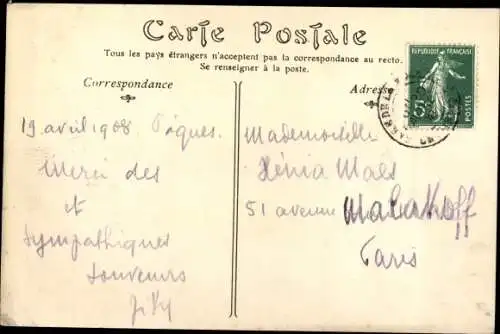 Carte Postale
Tous les pays étrangers n'acceptent pas la correspondance au recto.
Se renseigner à la poste.
Correspondance
Adresse
REPUBLIQUE FRANÇAISE
5c
POSTES
19 avril 1908 Pâques.
Merci des
et
sympathiques
souvenirs
Mademoiselle
Xénia Mals
51 avenue Malakoff
Paris